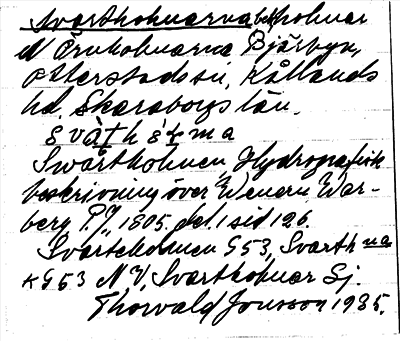 Svartholmarna holmar
N Örnholmarna Bjärbyn,
Otterstads sn, Kållands
hd. Skaraborgs län.
Svartholmen, Hydrografisk
beskrivning över Wenern War-
berg P. J., 1805. del. 1 sid 126.
Svarteholmen G 53, Svarth na
K G 53 N. V. Svartholmar Sj.
Thorvald Jonsson 1935.